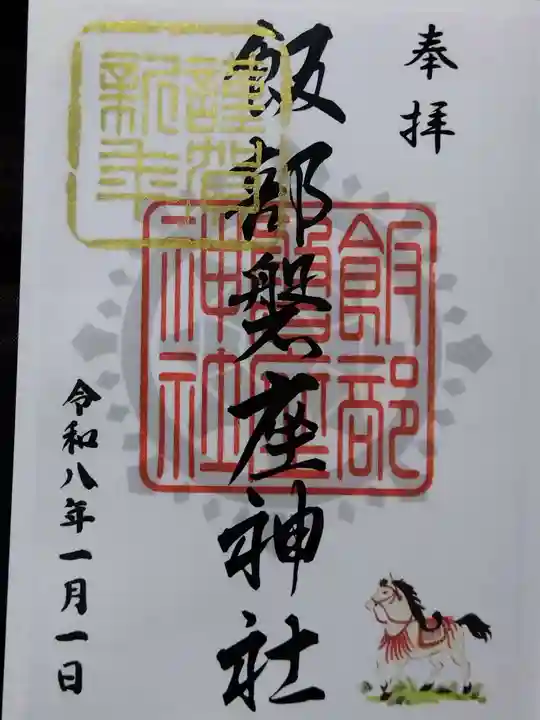 奉拝
飯部磐座神社
令和八年一月一日
謹賀
新年
飯部
磐座
神社